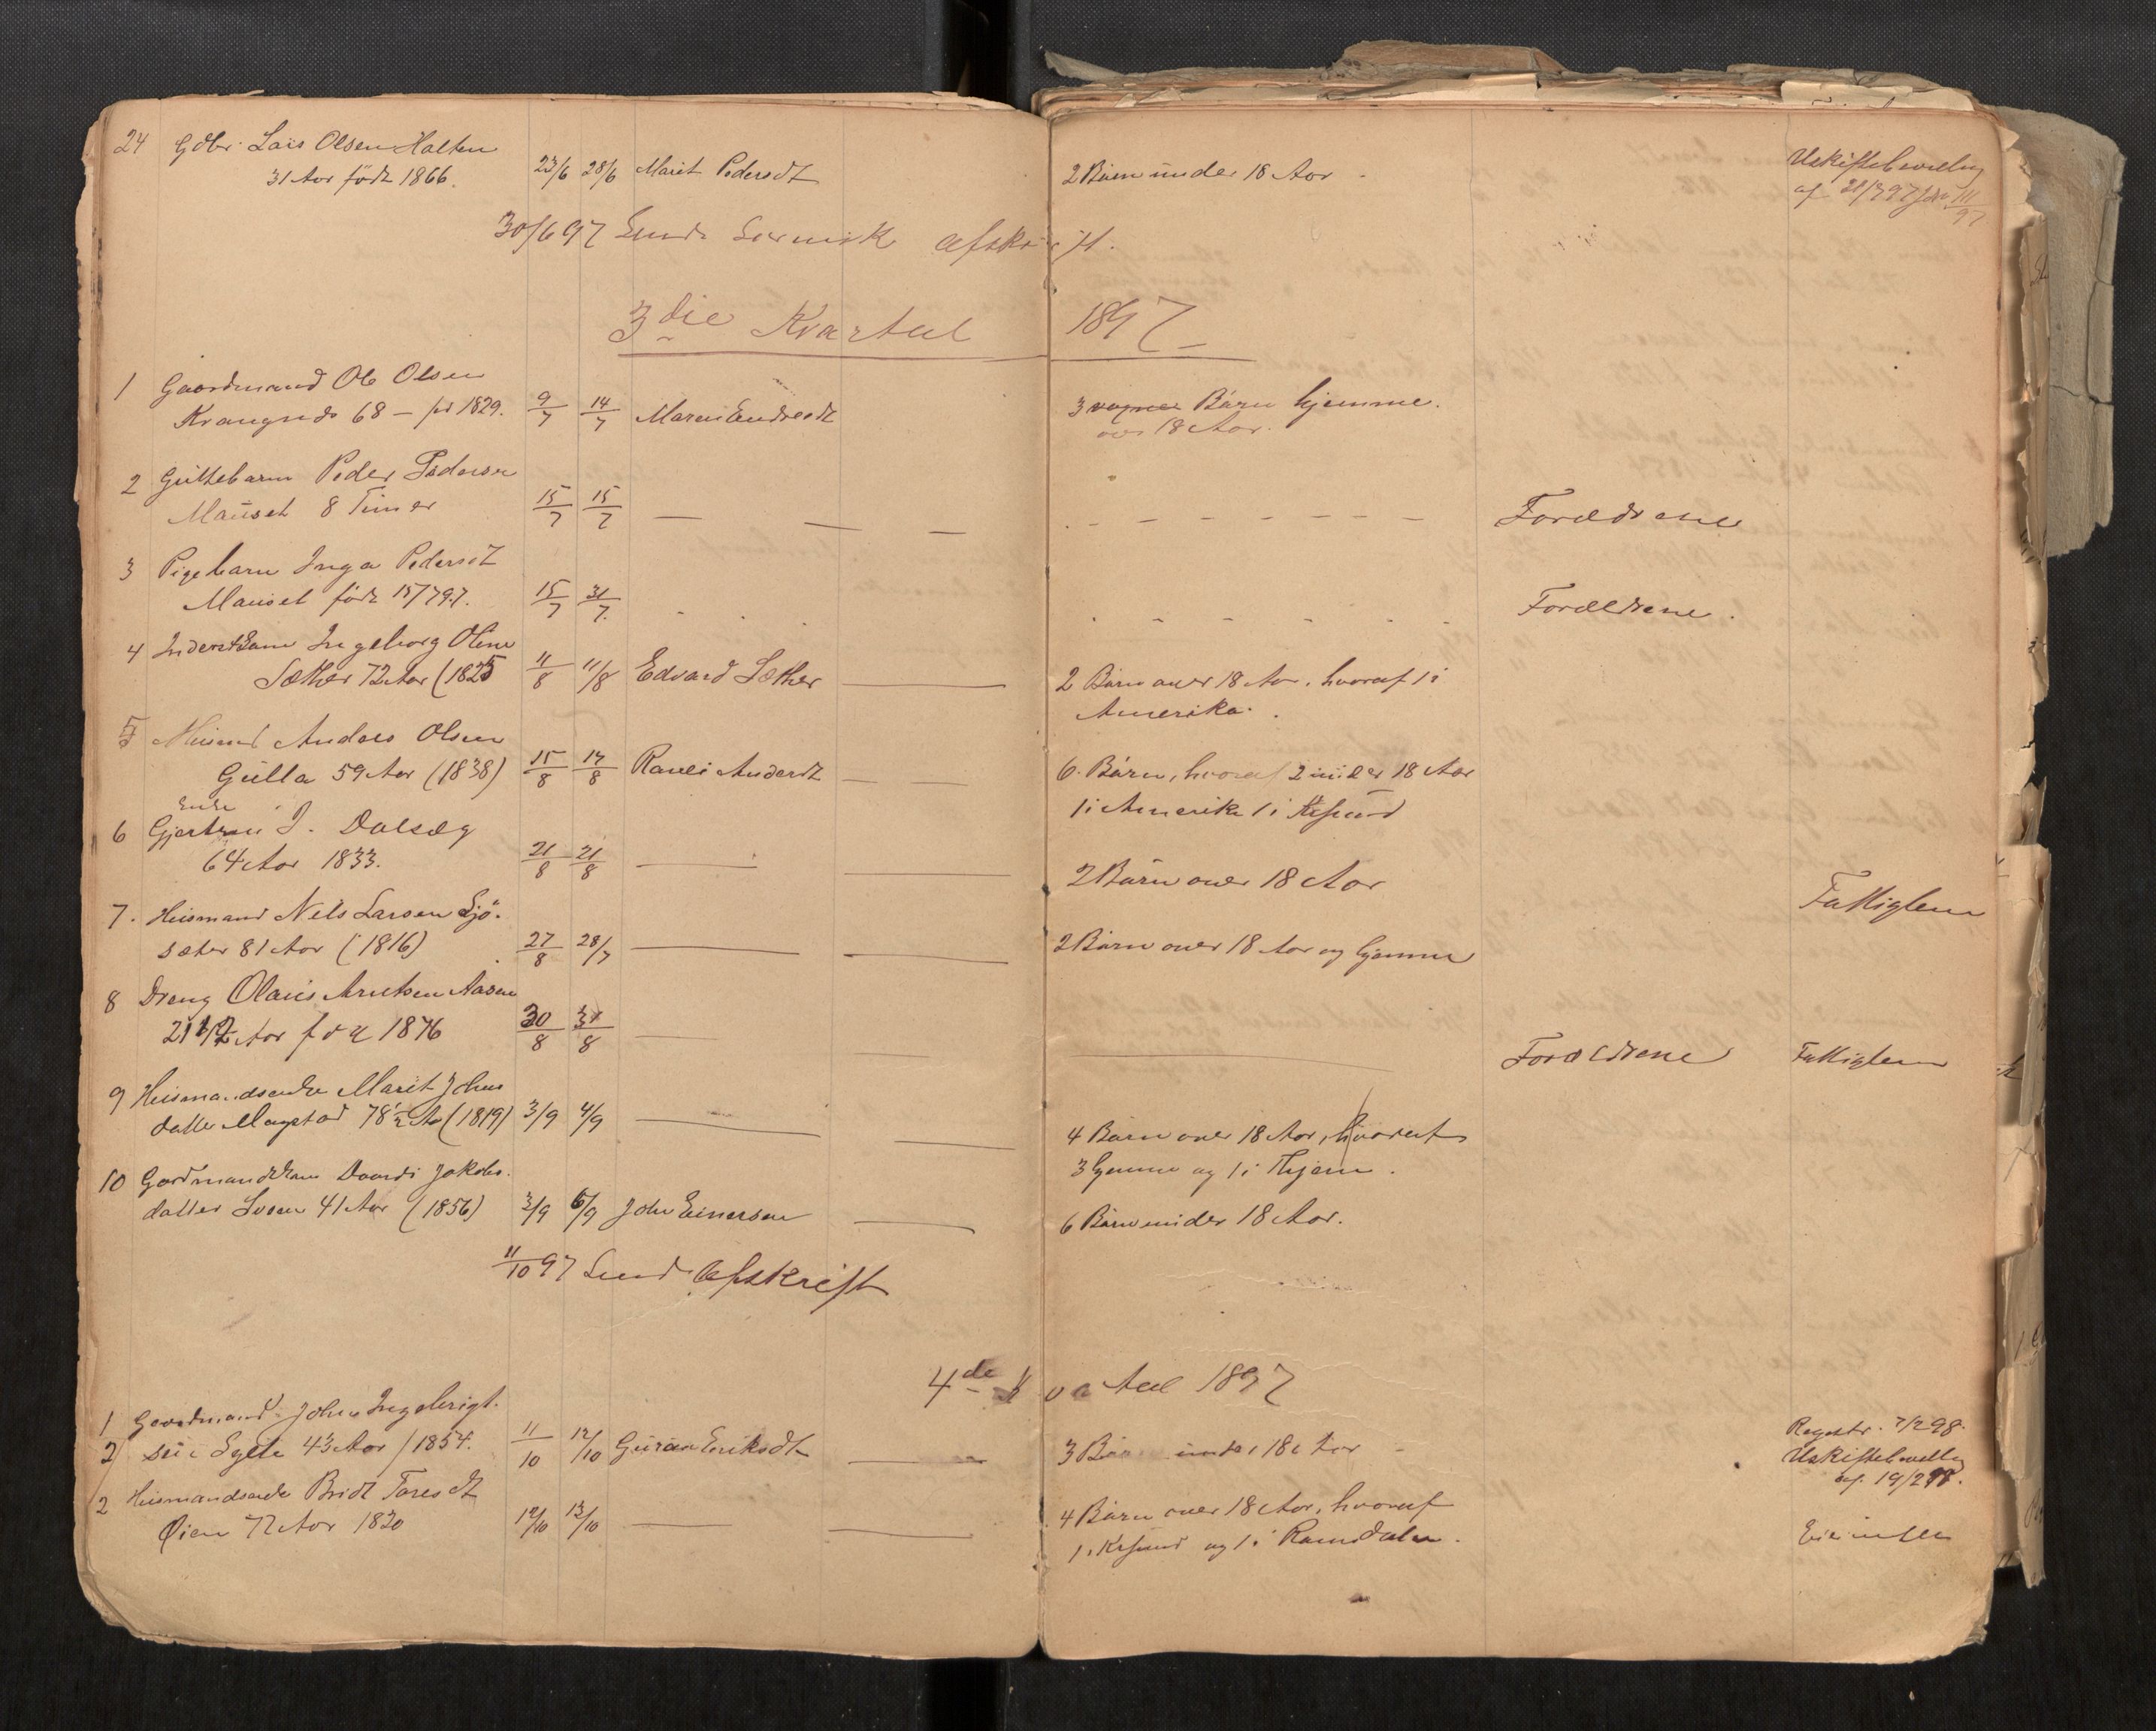 24 Gdbr. Lars Olsen Halten 23/6 28/6 Marit Pedersdt 2 Børn under 18 Aar
31 Aar født 1866.
Uskiftebevilling
af
30/6 97 Sendt Afskrift.
3die Kvartal 1897
1 Gaardmand Ole Olsen
Kvangnds 68 – fød 1829. 9/7 14/7 Maren Endresdt 3 Børn hjemme.
over 18 Aar.
2 Guttebarn Peder Pedersen
Mauset 8 Timer 15/7 15/7 — — — Forældrene
3 Pigebarn Inga Pedersdt
Mauset født 15/7 97. 15/7 31/7 Forældrene.
4 Inderstkone Ingeborg Oline
Sæther 72 Aar (1825 11/8 11/8 Edvard Sæther — 2 Børn over 18 Aar, hvoraf 1 i
Amerika.
5 Husmd Anders Olsen
Gulla 59 Aar (1838) 15/8 17/8 Andersdt — 6 Børn, hvoraf 2 under 18 Aar
1 i Amerika 1 i Krsund
Enke
6 Gjertrud J. Dalsæg
64 Aar 1833. 21/8 21/8 — — 2 Børn over 18 Aar
Fattiglem
7. Husmand Nels Larsen Ljö-
sæter 81 Aar (1816) 27/8 28/7 — — 2 Børn over 18 Aar og hjemme
8 Dreng Olaus Arntsen Aasen
21 1/2 Aar født 1876 30/8 31/8 — — Forældrene Fattiglem
9 Husmandsenke Marit Johns
datter Magstad 78 1/2 Aa (1819) 3/9 4/9 — — 4 Børn over 18 Aar, hvoraf
3 hjemme og 1 i Thjem.
10 Gardmandskone Dordi Jakobs-
datter Svean 41 Aar (1856) 3/9 6/9 John Einersen — 6 Børn under 18 Aar.
11/10 97 Sendt Afskrift
4de Kvartal 1897
1 Gaardmand John Ingebrigt-
sen Sylte 43 Aar / 1854. 11/10 12/10 Guran Eriksdt — 3 Børn under 18 Aar
Regstr. 7/2 98.
Uskiftebevilling
af. 19/2 98.
2 Husmandsenke Brit Toresdt
Øien 77 Aar 1820 12/10 13/10 — — 4 Børn over 18 Aar, hvoraf
1 i Krsund og 1 i Romsdalen.